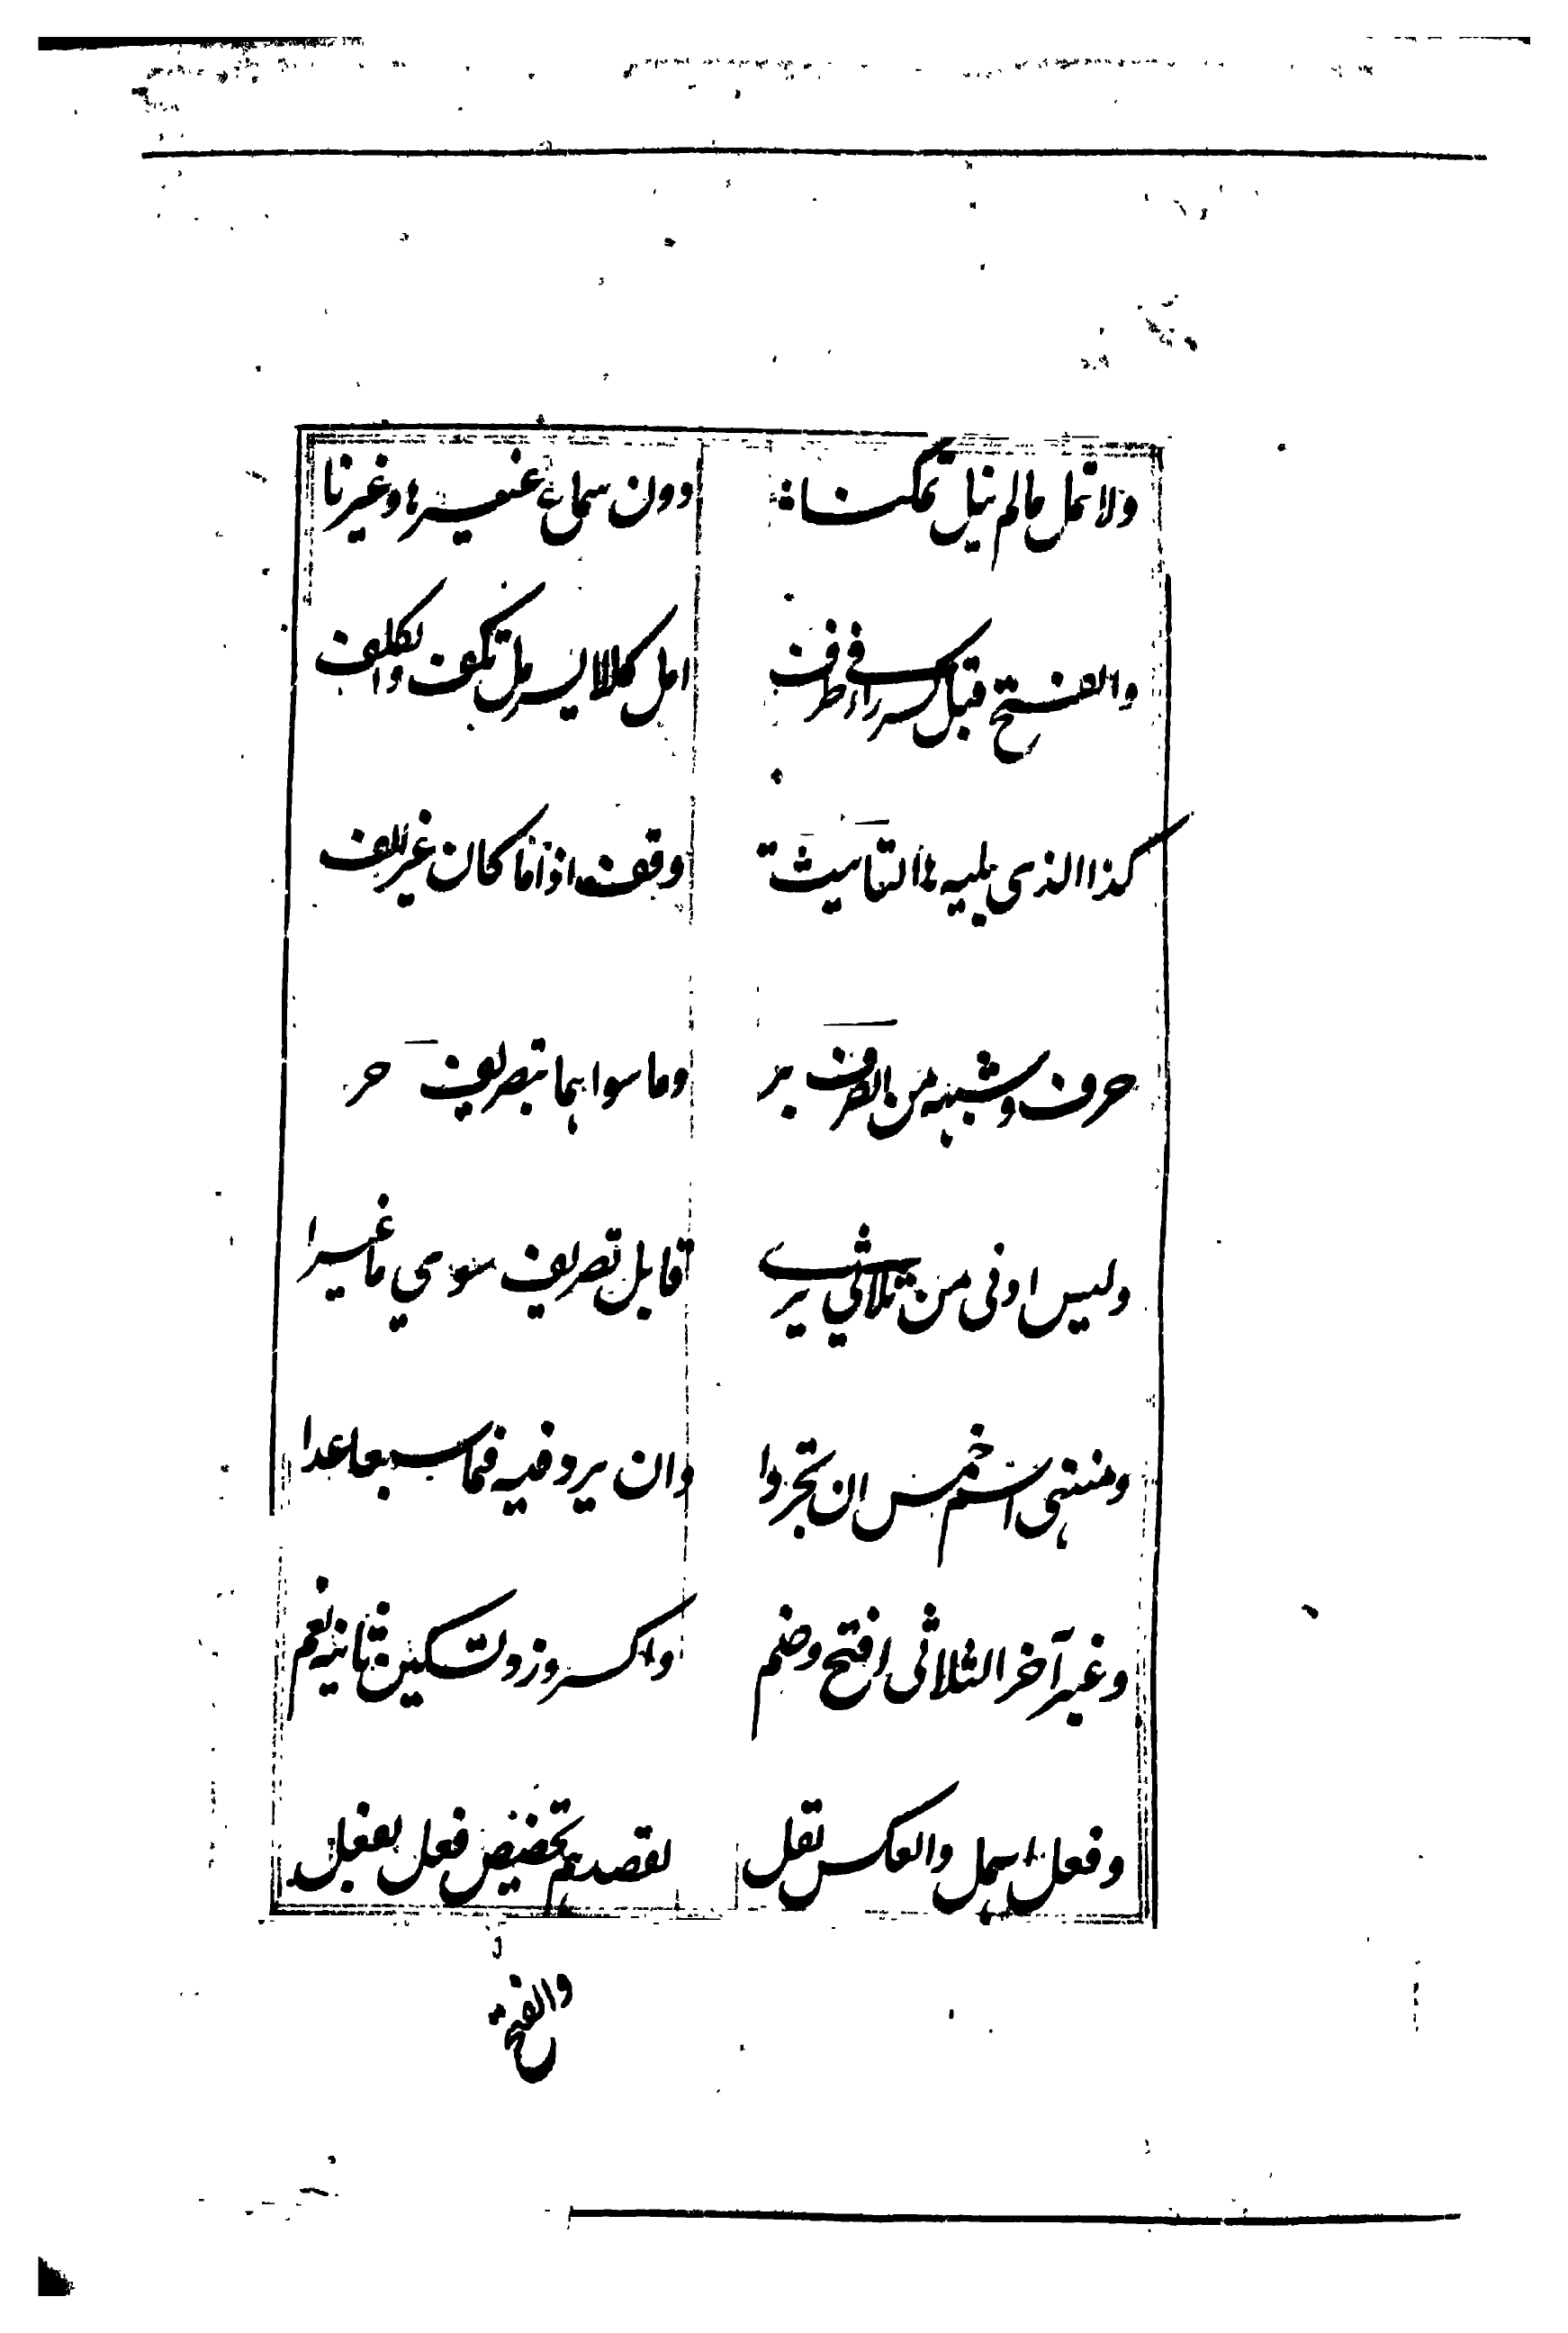 ولا تمل مالم ينل تمكنا دون سماع غيرها وغيرنا
والفتح قبل كسر راء في طرف امل كللايسر مل تكف الكلف
كذا الذي يليه ها التانيث وقف اذا ما كان غير الف
حرف وشبهه من الصرف بر وما سواهما بتصريف حر
وليس ادنى من ثلاثي يرى قابل تصريف سوى ما غيرا
ومنتهى اسم خمس ان تجردا وان يزد فيه فما سبعا عدا
وغير آخر الثلاثي افتح وضم واكسر وزد تسكين ثانيه تعم
وفعل اهمل والعكس يقل لقصدهم تخصيص فعل بفعل
والفتح